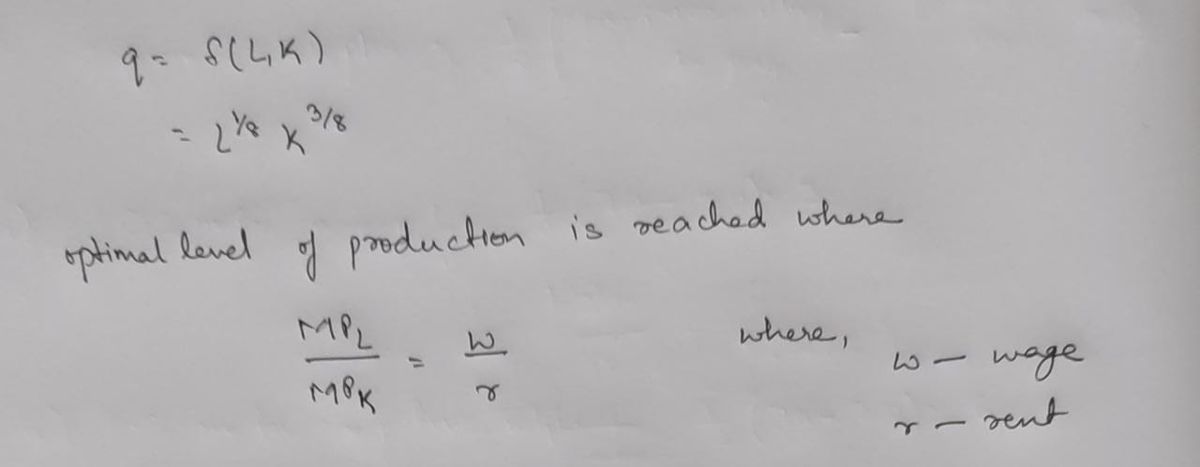 q = f(L,K)
= L^{1/8} K^{3/8}
optimal level of production is reached where
MP_L / MP_K = w / r where, w – wage
r – rent